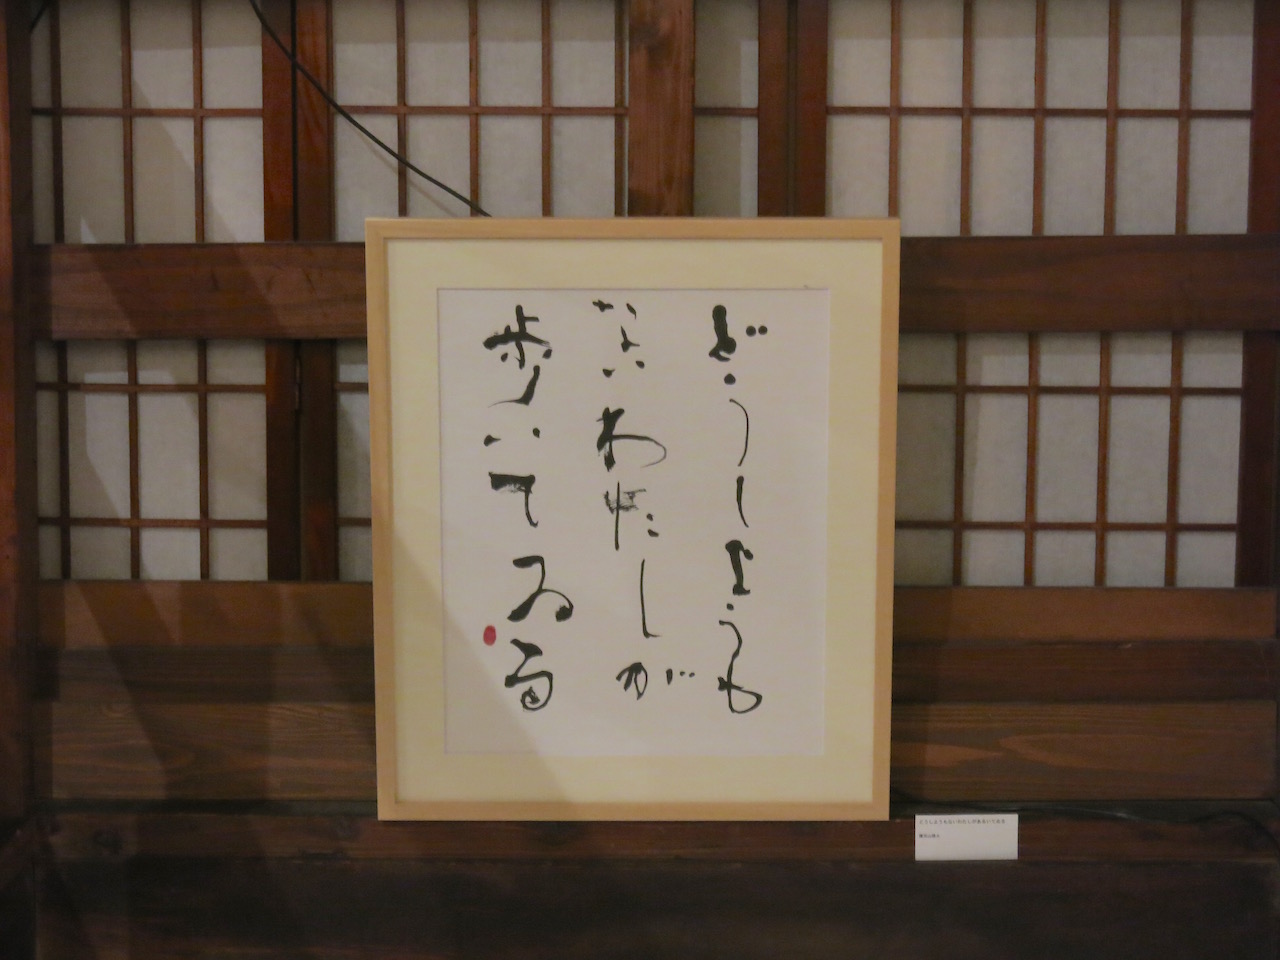 どうしようも
ないわたしが
歩いてゐる
どうしようもないわたしがあるいてゐる